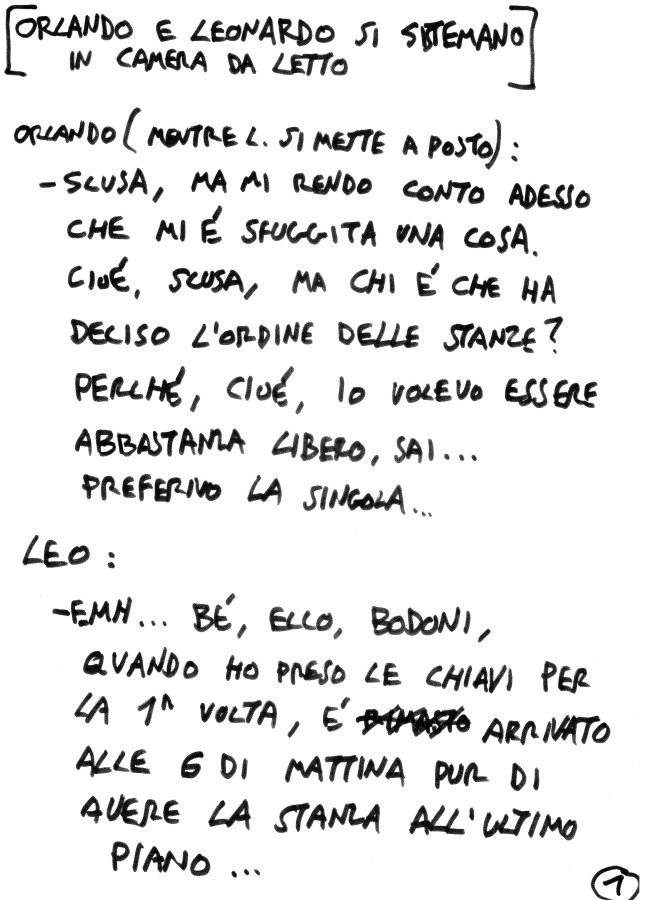 [ORLANDO E LEONARDO SI SISTEMANO
IN CAMERA DA LETTO]
ORLANDO (MENTRE L. SI METTE A POSTO):
- SCUSA, MA MI RENDO CONTO ADESSO
CHE MI É SFUGGITA UNA COSA.
CIOÉ, SCUSA, MA CHI É CHE HA
DECISO L'ORDINE DELLE STANZE?
PERCHÉ, CIOÉ, IO VOLEVO ESSERE
ABBASTANZA LIBERO, SAI...
PREFERIVO LA SINGOLA...
LEO:
-EMH... BÉ, ECCO, BODONI,
QUANDO HO PRESO LE CHIAVI PER
LA 1ª VOLTA, É ARRIVATO
ALLE 6 DI MATTINA PUR DI
AVERE LA STANZA ALL'ULTIMO
PIANO...
1